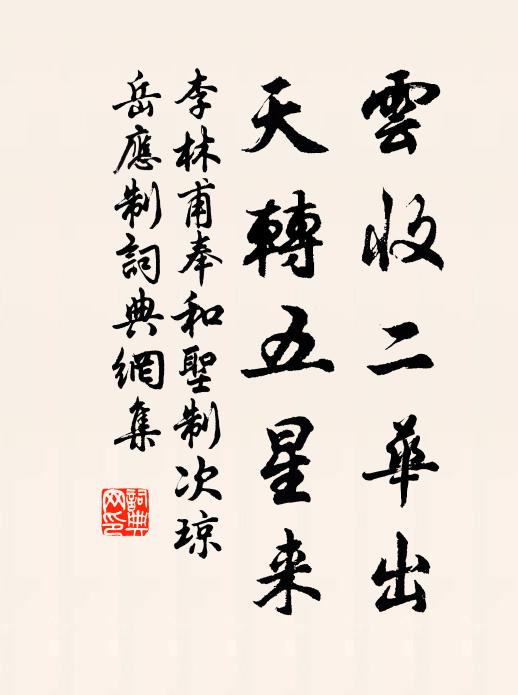 雲收二華出
天轉五星来
李林甫奉和聖制次琼
岳應制詞典網集
詞典
网印